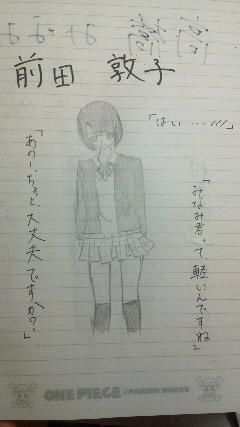 前田 敦子
「はい……///」
「みなみ君って、軽いんですね」
「あのー、ちょっと、大丈夫ですかの、」
ONE PIECE